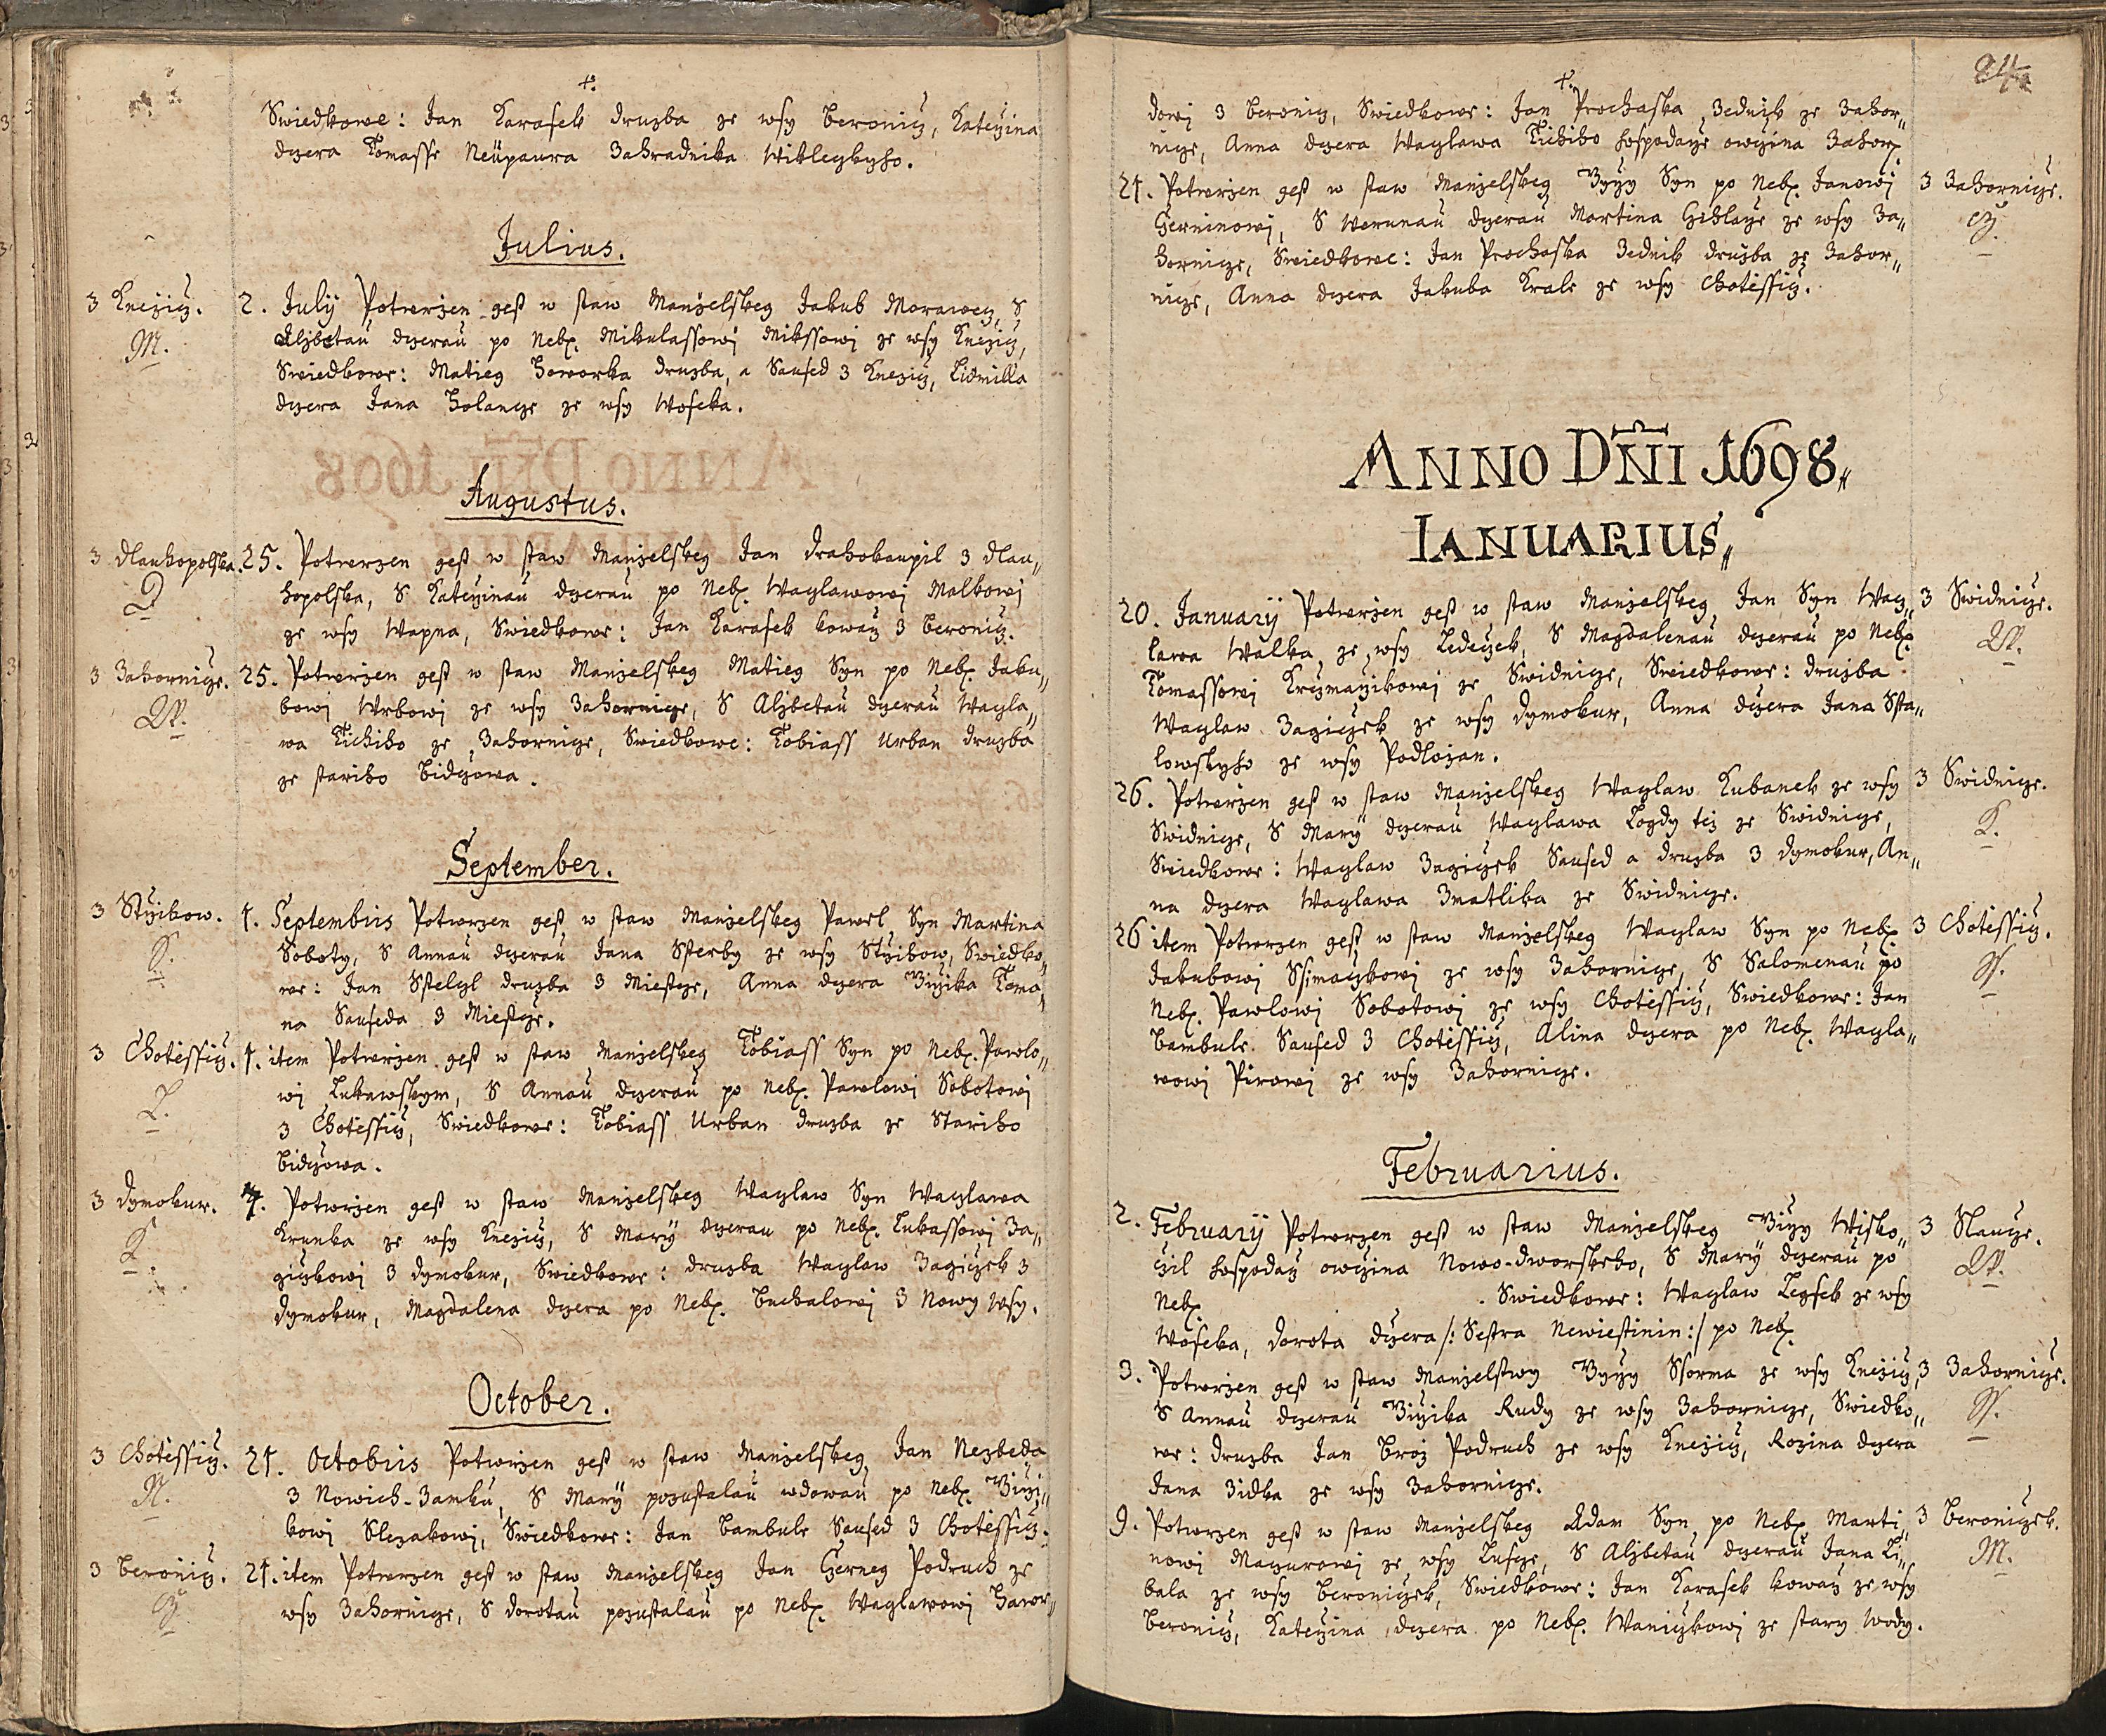 Swiedkowe: Jan Karasek druzba ze wsy Beronicz, Kateržina
dczera Tomasse Neüpaura Zahradnika Wikleczkyho.
Julius.
z Knezicz.
M.
2. Julÿ Potwrzen gest w staw Manzelskeg Jakub Morawecz, S
Alzbetau dczerau po Neb. Mikulassowi Mikssowi ze wsy Knezicz,
Swiedkowe: Matieg Howorka druzba, a Saused z Knezicz, Lidmilla
dczera Jana Holancze ze wsy Woseka.
Augustus.
z Dlauhopolska.
D
25. Potwrzen gest w staw Manzelskeg Jan Drahokaupil z Dlau„
hopolska, S Kateržinau dczerau po Neb. Waczlawowi Malkowi
ze wsy Wapna, Swiedkowe: Jan Karasek kowarz z Beronicz.
z Zahornicze.
W.
25. Potwrzen gest w staw Manzelskeg Matieg Syn po Neb. Jaku„
bowi Wrbowi ze wsy Zahornicze, S Alzbetau dczerau Waczla„
wa Tichiho ze Zahornicze, Swiedkowe: Tobiass Urban druzba
ze stariho Bidczowa.
September.
z Stržihow.
S.
1. Septembris Potwrzen gest w staw Manzelskeg Pawel Syn Martina
Soboty, S Annau dczerau Jana Ssterby ze wsy Stržihow, Swiedko„
we: Jan Sstelczl druzba z Miestcze, Anna dczera Giržika Toma„
na Sauseda z Miestcze.
z Chotiessicz.
L.
1. item Potwrzen gest w staw Manzelskeg Tobiass Syn po Neb. Pawlo„
wi Lukawskym, S Annau dczerau po Neb. Pawlowi Sobotowi
z Chotiessicz, Swiedkowe: Tobiass Urban druzba ze Stariho
Bidczowa.
z Dymokur.
K
7. Potwrzen gest w staw Manzelskeg Waczlaw Syn Waczlawa
Krunka ze wsy Knezicz, S Marÿ dczerau po Neb. Lukassowi Za„
giczkowi z Dymokur, Swiedkowe: druzba Waczlaw Zagiczek z
Dymokur, Magdalena dczera po Neb. Buchalowi z Nowy Wsy.
October.
z Chotiessicz.
N.
21. Octobris Potwrzen gest w staw Manzelskeg Jan Nezbeda
z Nowich-Zamku, S Marÿ pozustalau wdowau po Neb. Girži„
kowi Slezakowi, Swiedkowe: Jan Bambule Saused z Chotiessicz.
z Beronicz.
Cž.
21. item Potwrzen gest w staw Manzelskeg Jan Czerneg Podruch ze
wsy Zahornicze, S Dorotau pozustalau po Neb. Waczlawowi Hawor„
24
dowi z Beronicz, Swiedkowe: Jan Prochaska Zednik ze Zahor„
nicze, Anna dczera Waczlawa Tichiho hospodarze owczina Zahor.
21. Potwrzen gest w staw Manzelskeg Gyrzy Syn po Neb. Janowi
Czerninowi, S Werunau dczerau Martina Cihlarze ze wsy Za„
hornicze, Swiedkowe: Jan Prochaska Zednik druzba ze Zahor„
nicze, Anna dczera Jakuba Krale ze wsy Chotiessicz.
z Zahornicze.
cž.
ANNO DÑI 1698„
IANUARIUS„
20. Januarÿ Potwrzen gest w staw Manzelskeg Jan Syn Wacz„
lawa Walka ze wsy Ledeczek, S Magdalenau dczerau po Neb.
Tomassowi Krczmarzikowi ze Swidnicze, Swiedkowe: druzba
Waczlaw Zagiczek ze wsy Dymokur, Anna dczera Jana Ssta„
lowskyho ze wsy Podlozan.
z Swidnicze.
W.
26. Potwrzen gest w staw Manzelskeg Waczlaw Kubanek ze wsy
Swidnicze, S Marÿ dczerau Waczlawa Logdy tez ze Swidnicze,
Swiedkowe: Waczlaw Zagiczek Saused a druzba z Dymokur, An„
na dczera Waczlawa Zmatlika ze Swidnicze.
z Swidnicze.
K.
26 item Potwrzen gest w staw Manzelskeg Waczlaw Syn po Neb.
Jakubowi Ssimaczkowi ze wsy Zahornicze, S Salomenau po
Neb. Pawlowi Sobotowi ze wsy Chotiessicz, Swiedkowe: Jan
Bambule Saused z Chotiessicz, Alina dczera po Neb. Waczla„
wowi Pirowi ze wsy Zahornicze.
z Chotiessicz.
Ss.
Februarius.
2. Februarÿ Potwrzen gest w staw Manzelskeg Giržy Wisko„
czil hospodarz owczina Nowo-dworskeho, S Marÿ dczerau po
Neb. . Swiedkowe: Waczlaw Legsek ze wsy
Woseka, Dorota dczera /: Sestra Newiestinin :/ po Neb.
z Slaucze.
W.
3. Potwrzen gest w staw Manzelstwy Gyrzy Ssorma ze wsy Knezicz,
S Annau dczerau Giržika Rudy ze wsy Zahornicze, Swiedko„
we: druzba Jan Broz Podruch ze wsy Knezicz, Rozina dczera
Jana Zidka ze wsy Zahornicze.
z Zahornicze.
Ss.
9. Potwrzen gest w staw Manzelskeg Adam Syn po Neb. Marti„
nowi Mazurowi ze wsy Lusze, S Alzbetau dczerau Jana Li„
bala ze wsy Beroniczek, Swiedkowe: Jan Karasek kowarz ze wsy
Beronicz, Kateržina dczera po Neb. Waniczkowi ze stary Wody.
z Beroniczek.
M.